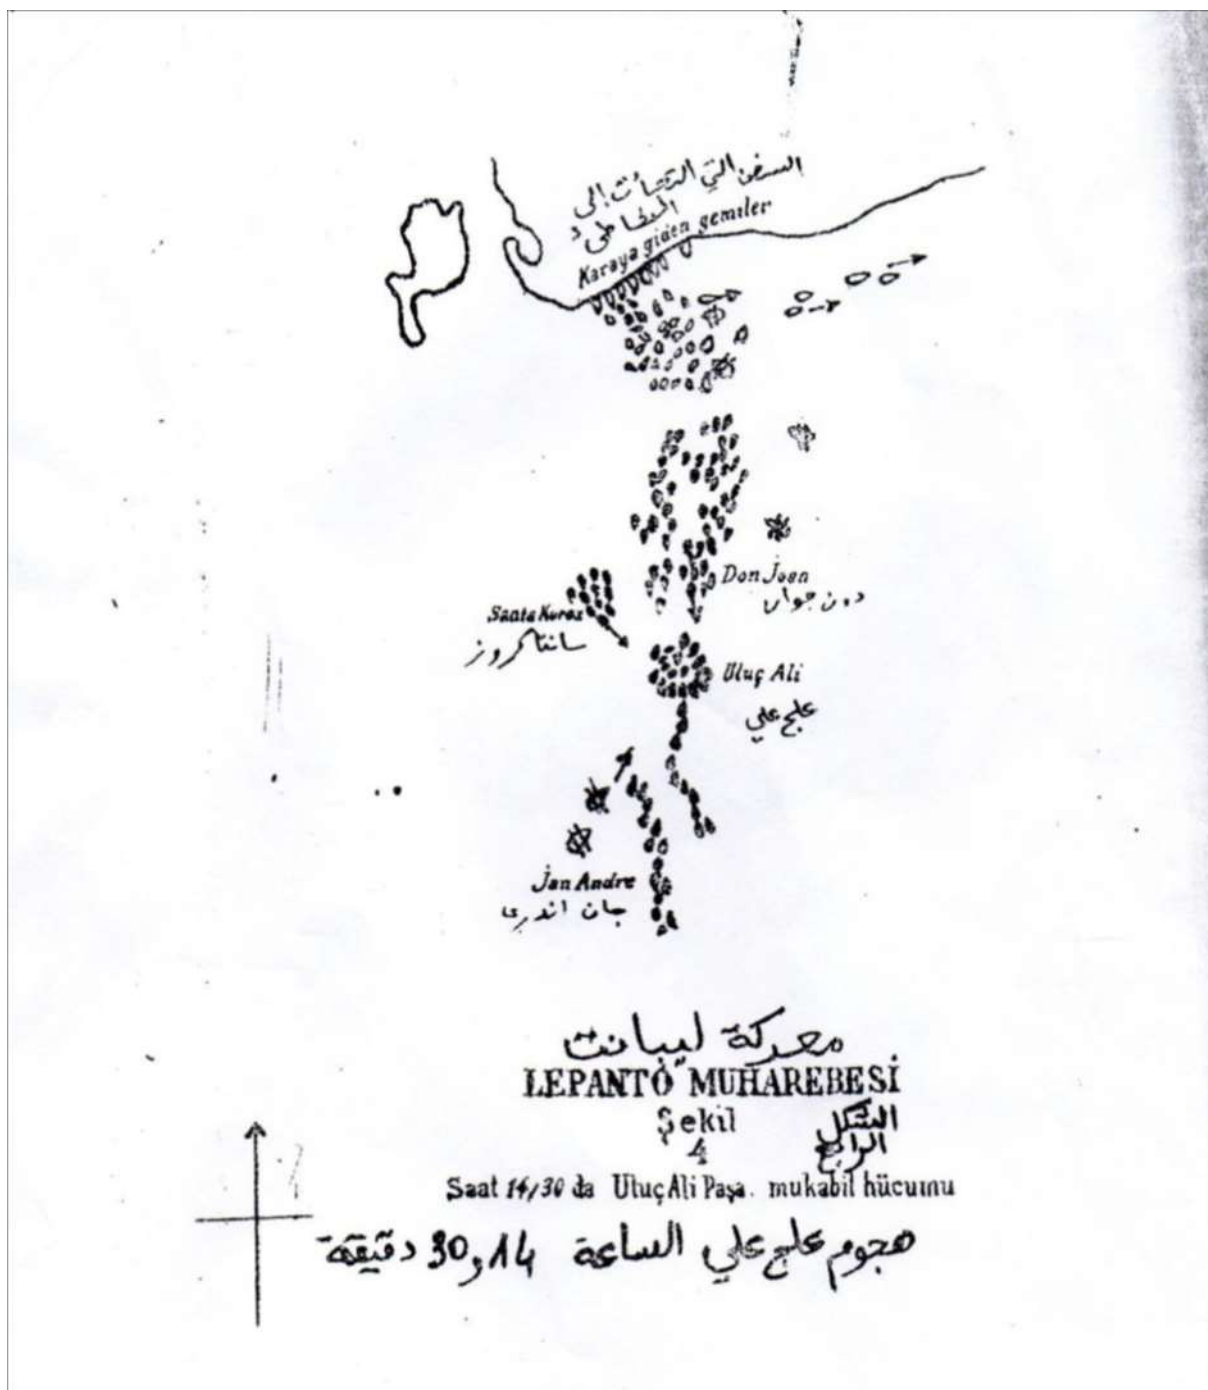 السفن التي التجأت إلى
الشاطئ
Karaya giden gemiler
Don Joan
دون جوان
Santa Kuroz
سانتا كروز
Uluç Ali
علج علي
Jan Andre
جان اندري
معركة ليبانت
LEPANTO MUHAREBESİ
Şekil الشكل
4 الرابع
Saat 14/30 da Uluç Ali Paşa. mukabil hücumu
هجوم علج علي الساعة 14 و 30 دقيقة